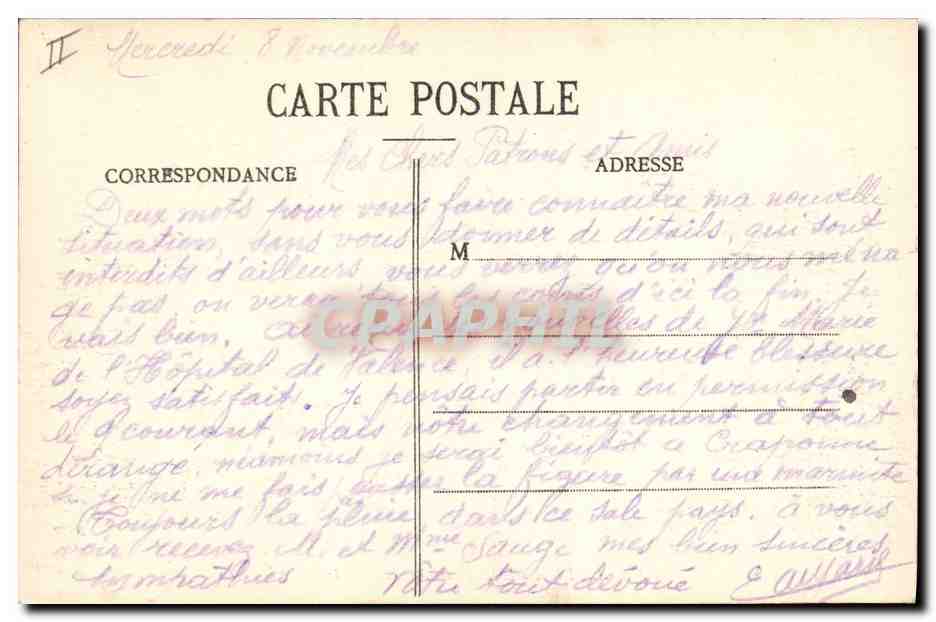 II
Mercredi 8 Novembre
CARTE POSTALE
Mes Chers Patrons et Amis
CORRESPONDANCE
ADRESSE
Deux mots pour vous faire connaître ma nouvelle
situation, sans vous donner de détails, qui sont
M
interdits d'ailleurs, vous verrez qu'on nous ména
ge pas, on verra tous les coins d'ici la fin. Je
vais bien. nouvelles de Marie
CPAPHIL
de l'Hôpital de Valence, il a l'heureuse blessure
soyez satisfait. Je pensais partir en permission
le 9 courant, mais notre changement à tout
dérangé, néanmoins je serai bientôt a Craponne
si je ne me fais casser la figure par une marmite
Toujours la pluie dans ce sale pays. à vous
voir recevez M. et Mme Sauge mes bien sincères
sympathies Votre tout dévoué